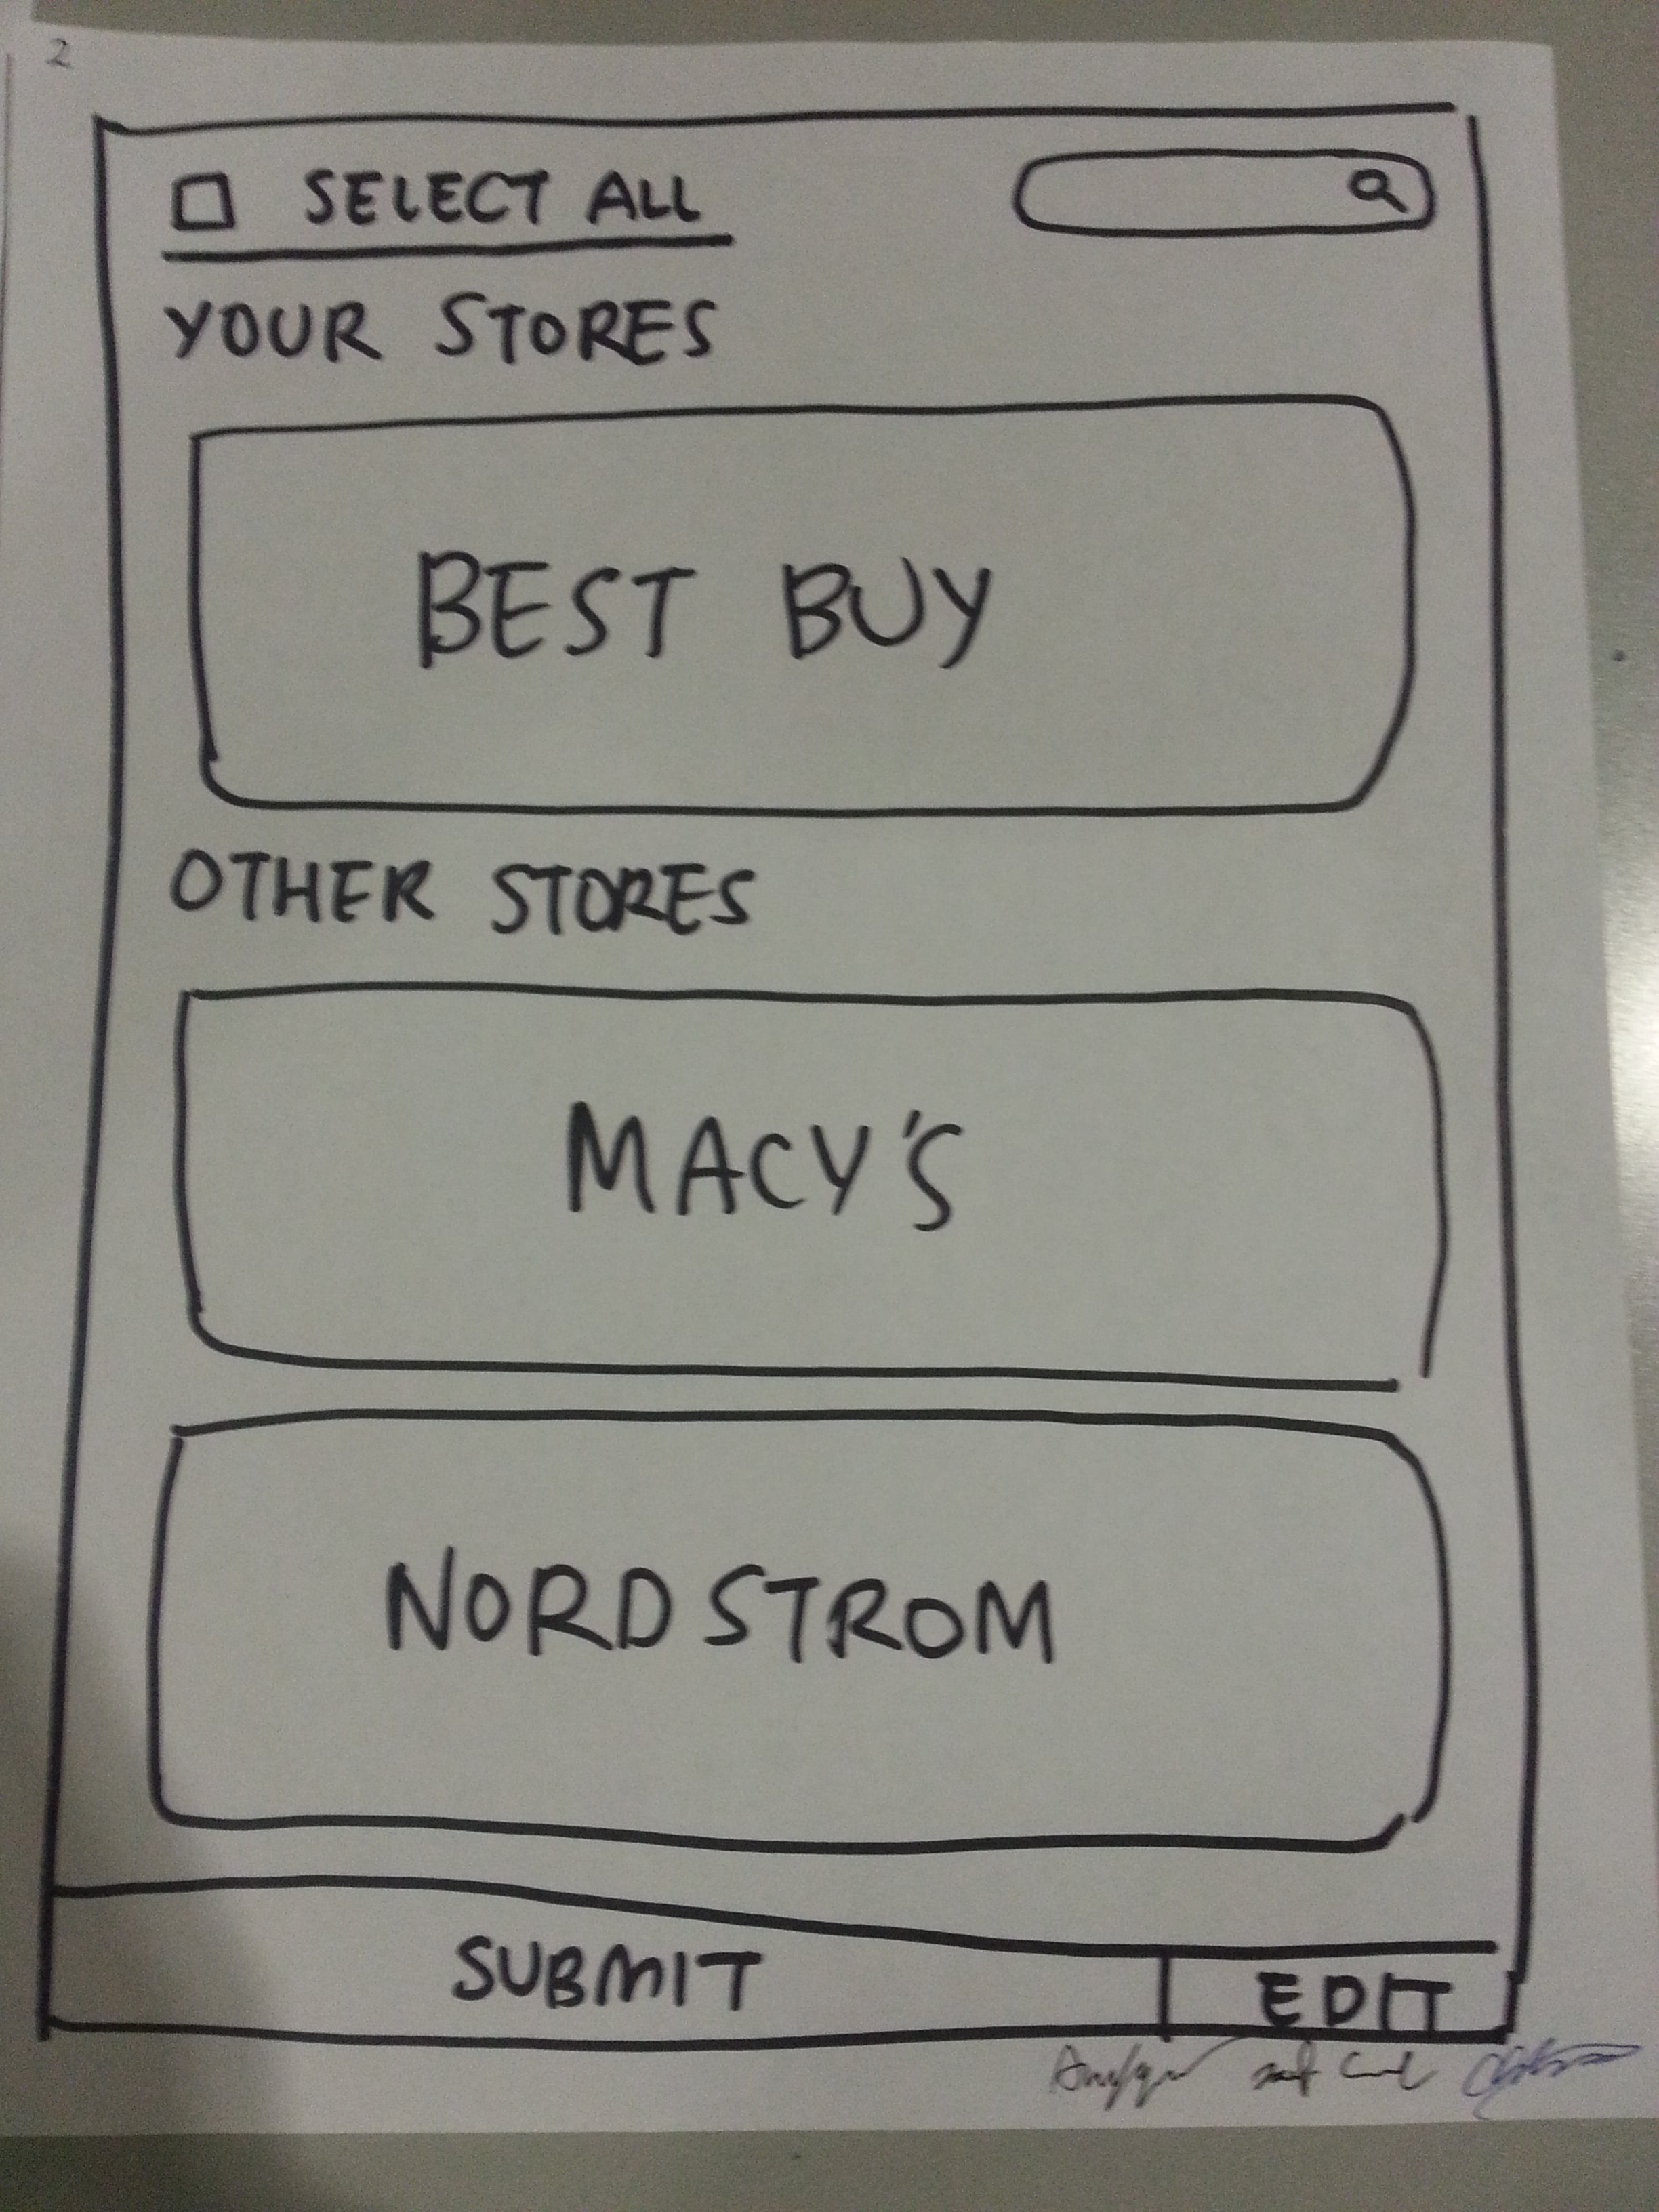 2
SELECT ALL
YOUR STORES
BEST BUY
OTHER STORES
MACY'S
NORDSTROM
SUBMIT
EDIT